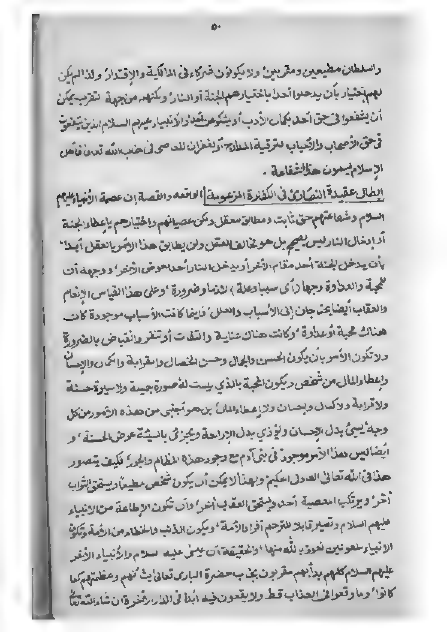 ٥٠
والسلطان مطيعين ومقربين ولا يكونون شركاء في المالكية والإقتدار ولذا لم يكن
لهم إختيار بأن يدخلوا أحدا بإختيارهم الجنة أو النار ولكنهم من جهة التقرب يمكن
أن يشفعوا في حق أحد بكمال الأدب أو يشكو من تعدد الأنبياء عليهم السلام الذين
في حق الأصحاب والأغنياء لترقية المطارح أو بغفران للعاصى في جنب الله تعالى فأهل
الإسلام يسمون هذا الشفاعة .
إبطال عقيدة النصارى في الكفارة المزعومة الواقعه والقصة إن عصمة الأنبياء عليهم
السلام وشفاعتهم حق ثابت ومطابق معقل ولكن عصيانهم وإختيارهم بإعطاء الجنة
أو إدخال النار ليس بصحيح بل هو مخالف العقل ولن يطابق هذا الأمر بالعقل أبدا
بأن يدخل الجنة أحد مقام الأخر أو يدخل النار أحد عوض الأخر ووجهه أن
للمحبة والعداوة وجها (أى سببا وعلة) لازما وضرورة وعلى هذا القياس الإنعام
والعقاب أيضا يحتاجان إلى الأسباب والعلل فأينما كانت الأسباب موجودة كانت
هناك محبة أو عداوة وكانت هناك عناية والتفات أو تنفر وانقباض بالضرورة
ولا تكون الأمور بأن يكون الحسن والجمال وحسن الخصال والقرابة والكمال والإحسان
وإعطاء المال من شخص ويكون المحبة بالذي ليست له صورة جميلة ولا سيرة حسنة
ولا قرابة ولا كمال وإحسان ولا إعطاء المال بل هو أجنبى من هذه الأمور من كل
وجه يسئ بدل الإحسان ويؤذي بدل الراحة ويجزئ بالسيئة عوض الحسنة و
أيضا ليس هذا الأمر موجودة في بنى آدم مع وجود هذه المظالم والجور فكيف يتصور
هذا في الله تعالى العدل الحكيم ولهذا لا يمكن أن يكون شخص مطيعا ويستحق الثواب
أخر ويرتكب المعصية أحد ويستحق العقاب أخر وأن تكون الإطاعة من الأنبياء
عليهم السلام وتصير قابلا للترحم أفراد الأمة ويكون الذنب والخطاء من الأمة وتكون
الأنبياء ملعونين نعوذ بالله منها والحقيقة أن عيسى عليه السلام والأنبياء الأخر
عليهم السلام كلهم مقربون حضرة البارى تعالى وعظمتهم كما
كانوا وما وقعوا في العذاب قط ولا يقعون فيه أبدا في الدار الأخرة إن شاء الله تعالى